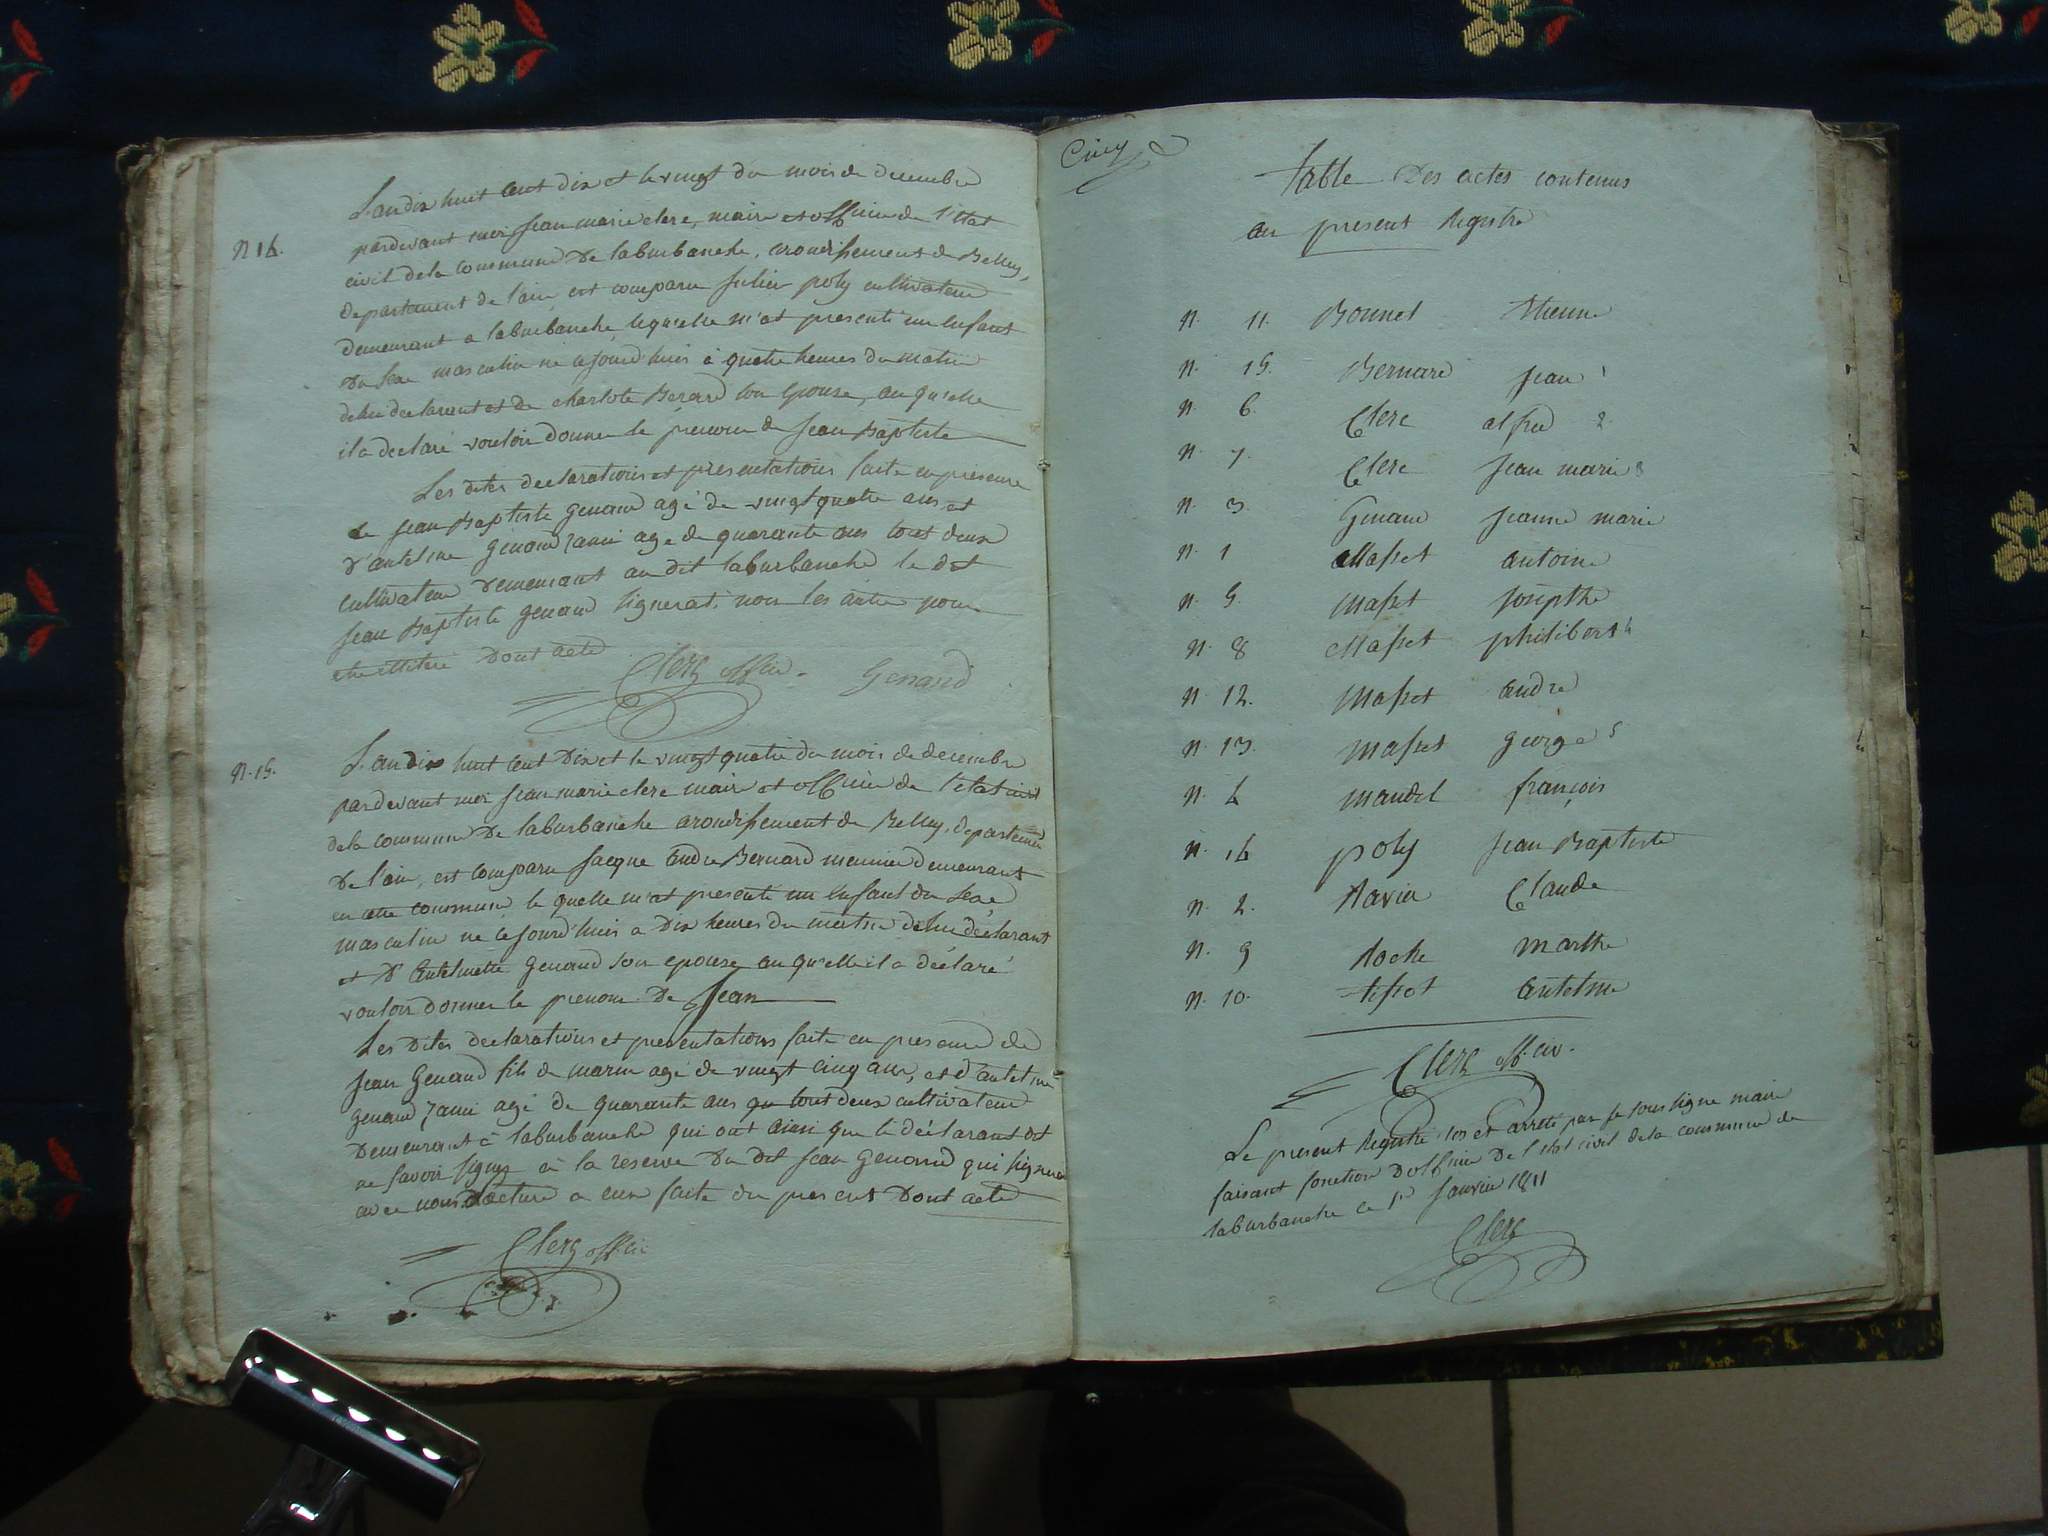 N 14.
L'an dix huit cent dix et le vingt du mois de decembre
pardevant moi jean marie clerc, maire et officier de l'etat
civil dela commune De laburbanche, arondissement de Belley,
departement de l'ain, est comparu julien poly cultivateur
demeurant a laburbanche, lequelle m'at presenté un enfant
du sexe masculin né cejourd'huis à quatre heures du matin
delui declarant et de charlote Berard son épouse, au quelle
il a declaré vouloir donner le prenom de jean Baptiste
Les dites declarations et presentations faite en presence
de jean Baptiste genand agé de vingt quatre ans, et
d'antelme genand agé de quarante ans tout deux
cultivateur demeurant au dit laburbanche le dit
jean Baptiste genand signerat, non les autre pour
Dont acte
Clerc offcier. Genand
N. 15.
L'an dix huit cent Dix et le vingt quatre du mois de decembre
pardevant moi jean marie clerc mair et officier de l'etat civil
dela commune De laburbanche arondissement de Belley, departement
De l'ain, est comparu jacque andre Bernard meunier demeurant
en cette commune, le quelle m'at presenté un enfant du sexe
masculin né cejourd'huis a Dix heures du matin delui déclarant
et D'antelmette genand son epouse, au quelle il a déclaré
vouloir donner le prenom De Jean
Les Dites declarations et presentations faite en presence de
jean Genand fils de marin agé de vingt cinq ans, et d'antelme
genand agé de quarante ans tout deux cultivateur
Demeurant à laburbanche qui ont ainsi que le déclarant dit
ne savoir signer à la reserve Du dit jean Genand qui signera
avec nous Lecture a eux faite du present Dont acte
Clerc off. civ
Cinq
Table Des actes contenus
au present Registre
N. 11. Bonnet Etienne
N. 15. Bernard jean 1
N. 6. Clerc alfred 2
N. 7. Clerc jean marie 3
N. 3. Genand jeanne marie
N. 1 Masset antoine
N. 5. Masset josepthe
N. 8 Masset philibert 4
N. 12. Masset andré
N. 13. Masset george 5
N. 4 mandel françois
N. 14 poly jean Baptiste
N. 2. Ravier Claude
N. 9 Roche marthe
N. 10. tissot antelme
Clerc off. civ.
Le present Registre clos et arreté par je soussigné maire
faisant fonction D'officier De l'état civil dela commune de
laburbanche ce 1er janvier 1811
Clerc